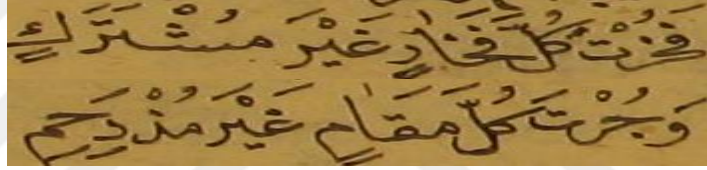 فَحُزْتَ كُلَّ فَخَارٍ غَيْرَ مُشْتَرَكٍ
وَجُزْتَ كُلَّ مَقَامٍ غَيْرَ مُزْدَحِمِ